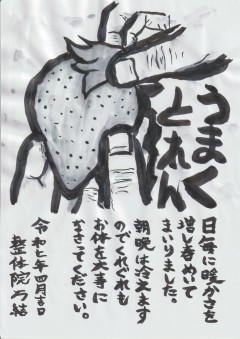 うまく
とれん
日毎に暖かさを
増し春めいて
まいりました。
朝晩は冷えます
のでくれぐれも
お体を大事に
なさってください。
令和七年四月吉日
整体院